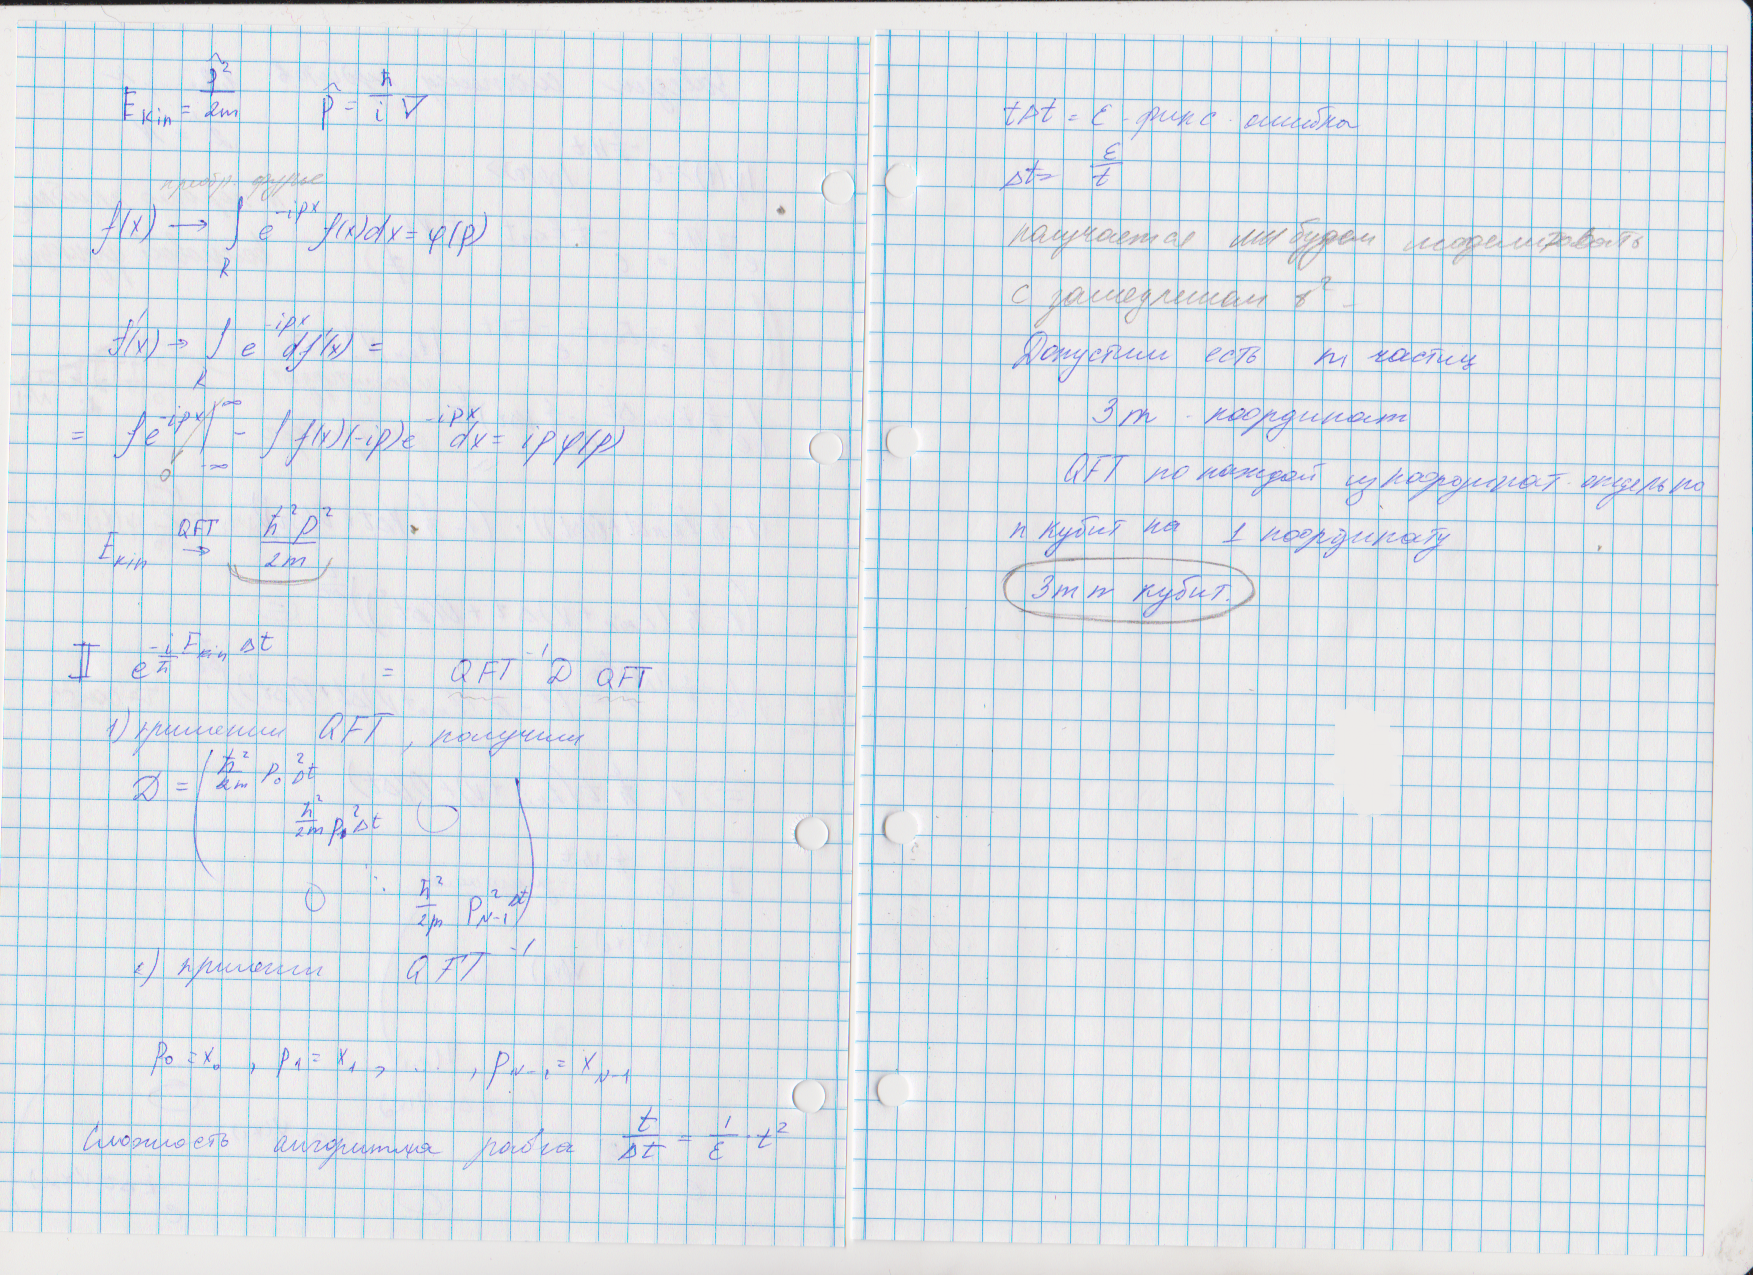 E_kin = p̂²/2m    p̂ = ħ/i ∇
преобр. фурье
f(x) → ∫_R e^{-ipx} f(x)dx = φ(p)
f'(x) → ∫_R e^{-ipx} df(x) =
= fe^{-ipx} |_{-∞}^{∞} - ∫ f(x)(-ip)e^{-ipx} dx = ip φ(p)
0
E_kin →^{QFT} ħ²p²/2m
II  e^{-i/ħ E_kin Δt} = QFT^{-1} D QFT
1) применим QFT, получим
D = ( ħ²/2m p₀² Δt
ħ²/2m p₁² Δt  0
0  ⋱  ħ²/2m p²_{N-1} Δt )
2) применим QFT^{-1}
p₀ = x₀, p₁ = x₁, ..., p_{N-1} = x_{N-1}
Сложность алгоритма равна t/Δt = 1/ε · t²
tΔt = ε - фикс. ошибка
Δt = ε/t
получается мы будем моделировать
с замедлением
Допустим есть m частиц
3m - координат
QFT по каждой из координат отдельно
n кубит на 1 координату
3mn кубит.